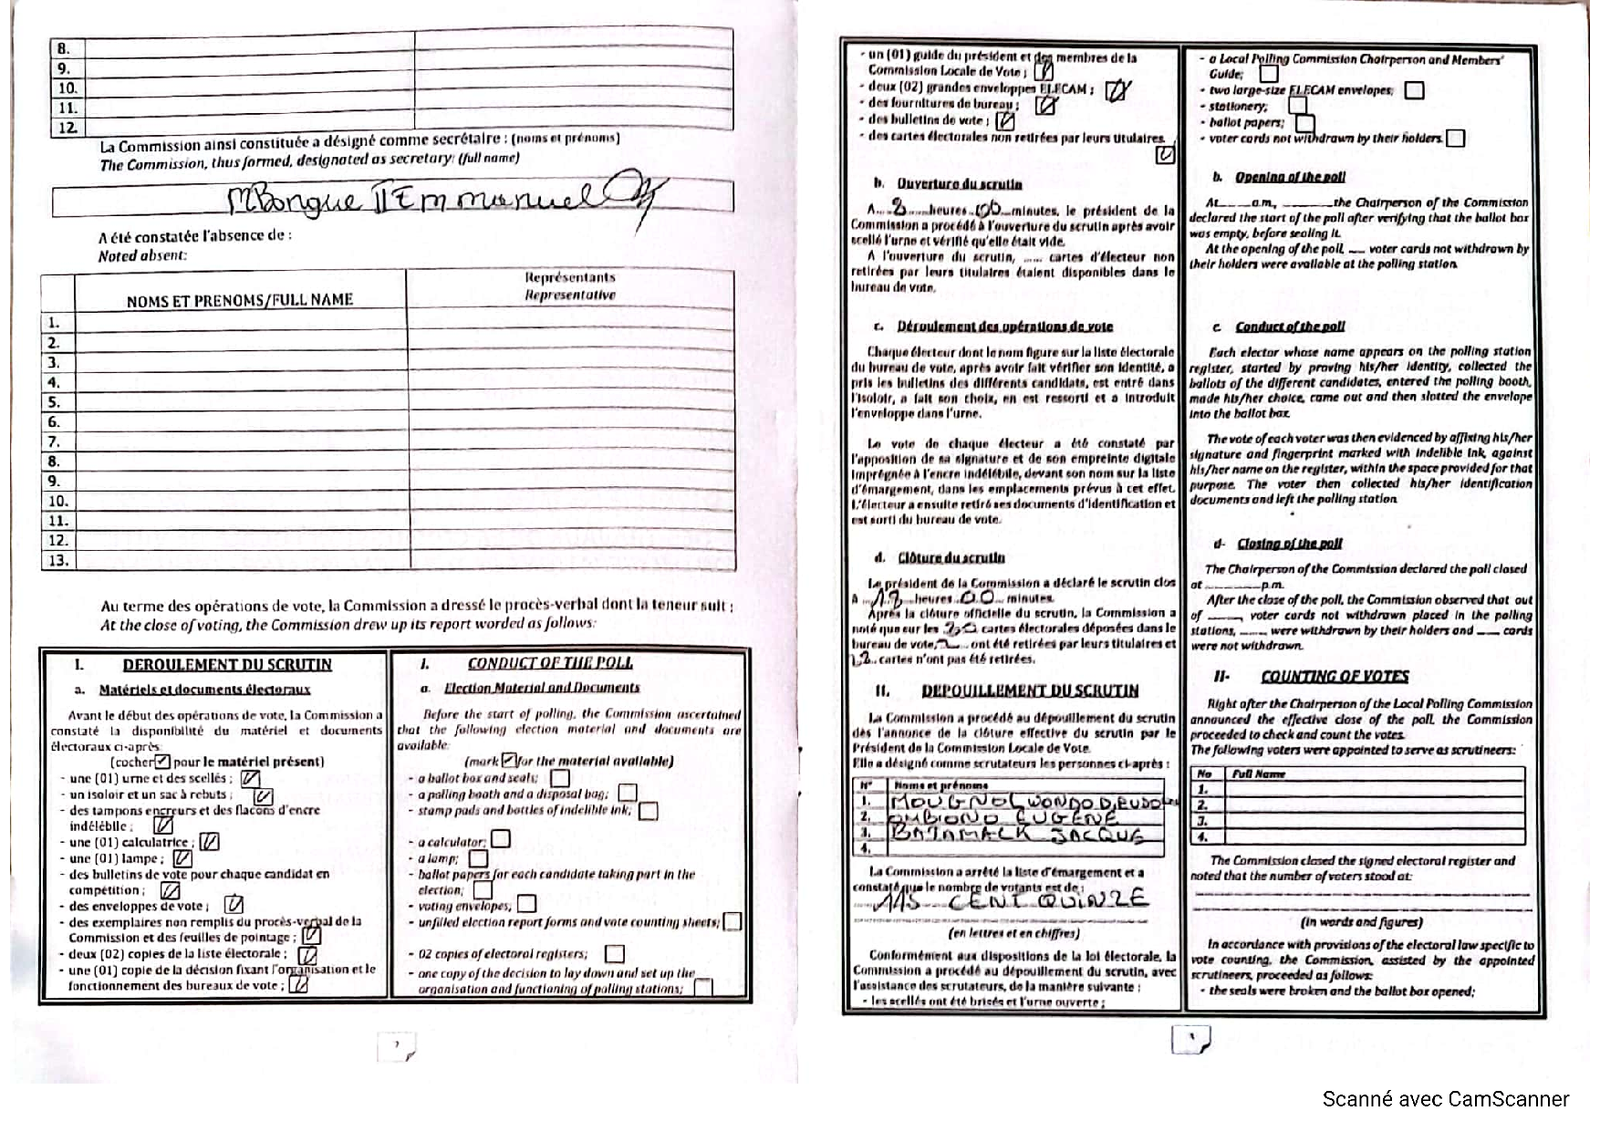 8.
9.
10.
11.
12.
La Commission ainsi constituée a désigné comme secrétaire : (noms et prénoms)
The Commission, thus formed, designated as secretary: (full name)
MBongue II Emmanuel
A été constatée l'absence de :
Noted absent:
NOMS ET PRENOMS/FULL NAME
Représentants
Representative
1.
2.
3.
4.
5.
6.
7.
8.
9.
10.
11.
12.
13.
Au terme des opérations de vote, la Commission a dressé le procès-verbal dont la teneur suit :
At the close of voting, the Commission drew up its report worded as follows:
I. DEROULEMENT DU SCRUTIN
a. Matériels et documents électoraux
Avant le début des opérations de vote, la Commission a
constaté la disponibilité du matériel et documents
électoraux ci-après
(cocher ✓ pour le matériel présent)
- une (01) urne et des scellés ;
- un isoloir et un sac à rebuts ;
- des tampons encreurs et des flacons d'encre
indélébile ;
- une (01) calculatrice ;
- une (01) lampe ;
- des bulletins de vote pour chaque candidat en
compétition ;
- des enveloppes de vote ;
- des exemplaires non remplis du procès-verbal de la
Commission et des feuilles de pointage ;
- deux (02) copies de la liste électorale ;
- une (01) copie de la décision fixant l'organisation et le
fonctionnement des bureaux de vote ;
I. CONDUCT OF THE POLL
a. Election Material and Documents
Before the start of polling, the Commission ascertained
that the following election material and documents are
available:
(mark ✓ for the material available)
- a ballot box and seals;
- a polling booth and a disposal bag;
- stamp pads and bottles of indelible ink;
- a calculator;
- a lamp;
- ballot papers for each candidate taking part in the
election;
- voting envelopes;
- unfilled election report forms and vote counting sheets;
- 02 copies of electoral registers;
- one copy of the decision to lay down and set up the
organisation and functioning of polling stations;
- un (01) guide du président et des membres de la
Commission Locale de Vote ;
- deux (02) grandes enveloppes ELECAM ;
- des fournitures de bureau ;
- des bulletins de vote ;
- des cartes électorales non retirées par leurs titulaires.
b. Ouverture du scrutin
A 8 heures 00 minutes, le président de la
Commission a procédé à l'ouverture du scrutin après avoir
scellé l'urne et vérifié qu'elle était vide.
A l'ouverture du scrutin, ..... cartes d'électeur non
retirées par leurs titulaires étaient disponibles dans le
bureau de vote.
c. Déroulement des opérations de vote
Chaque électeur dont le nom figure sur la liste électorale
du bureau de vote, après avoir fait vérifier son identité, a
pris les bulletins des différents candidats, est entré dans
l'isoloir, a fait son choix, en est ressorti et a introduit
l'enveloppe dans l'urne.
Le vote de chaque électeur a été constaté par
l'apposition de sa signature et de son empreinte digitale
imprégnée à l'encre indélébile, devant son nom sur la liste
d'émargement, dans les emplacements prévus à cet effet.
L'électeur a ensuite retiré ses documents d'identification et
est sorti du bureau de vote.
d. Clôture du scrutin
Le président de la Commission a déclaré le scrutin clos
A 18 heures 00 minutes.
Après la clôture officielle du scrutin, la Commission a
noté que sur les cartes électorales déposées dans le
bureau de vote, ont été retirées par leurs titulaires et
cartes n'ont pas été retirées.
II. DEPOUILLEMENT DU SCRUTIN
La Commission a procédé au dépouillement du scrutin
dès l'annonce de la clôture effective du scrutin par le
Président de la Commission Locale de Vote.
Elle a désigné comme scrutateurs les personnes ci-après :
N° Noms et prénoms
1. MOUGNOL WONDO
2. OMBIONO EUGENE
3. BATAMACK JACQUE
4.
La Commission a arrêté la liste d'émargement et a
constaté que le nombre de votants est de :
115 CENT QUINZE
(en lettres et en chiffres)
Conformément aux dispositions de la loi électorale, la
Commission a procédé au dépouillement du scrutin, avec
l'assistance des scrutateurs, de la manière suivante :
- les scellés ont été brisés et l'urne ouverte ;
- a Local Polling Commission Chairperson and Members'
Guide;
- two large-size ELECAM envelopes;
- stationery;
- ballot papers;
- voter cards not withdrawn by their holders.
b. Opening of the poll
At____a.m, ________the Chairperson of the Commission
declared the start of the poll after verifying that the ballot box
was empty, before sealing it.
At the opening of the poll, ___ voter cards not withdrawn by
their holders were available at the polling station.
c Conduct of the poll
Each elector whose name appears on the polling station
register, started by proving his/her identity, collected the
ballots of the different candidates, entered the polling booth,
made his/her choice, came out and then slotted the envelope
into the ballot box.
The vote of each voter was then evidenced by affixing his/her
signature and fingerprint marked with indelible ink, against
his/her name on the register, within the space provided for that
purpose. The voter then collected his/her identification
documents and left the polling station
d- Closing of the poll
The Chairperson of the Commission declared the poll closed
at __________p.m.
After the close of the poll, the Commission observed that out
of _____, voter cards not withdrawn placed in the polling
stations, ____ were withdrawn by their holders and ___ cards
were not withdrawn.
II- COUNTING OF VOTES
Right after the Chairperson of the Local Polling Commission
announced the effective close of the poll, the Commission
proceeded to check and count the votes.
The following voters were appointed to serve as scrutineers:
No Full Name
1.
2.
3.
4.
The Commission closed the signed electoral register and
noted that the number of voters stood at:
(in words and figures)
In accordance with provisions of the electoral law specific to
vote counting, the Commission, assisted by the appointed
scrutineers, proceeded as follows:
- the seals were broken and the ballot box opened;
Scanné avec CamScanner